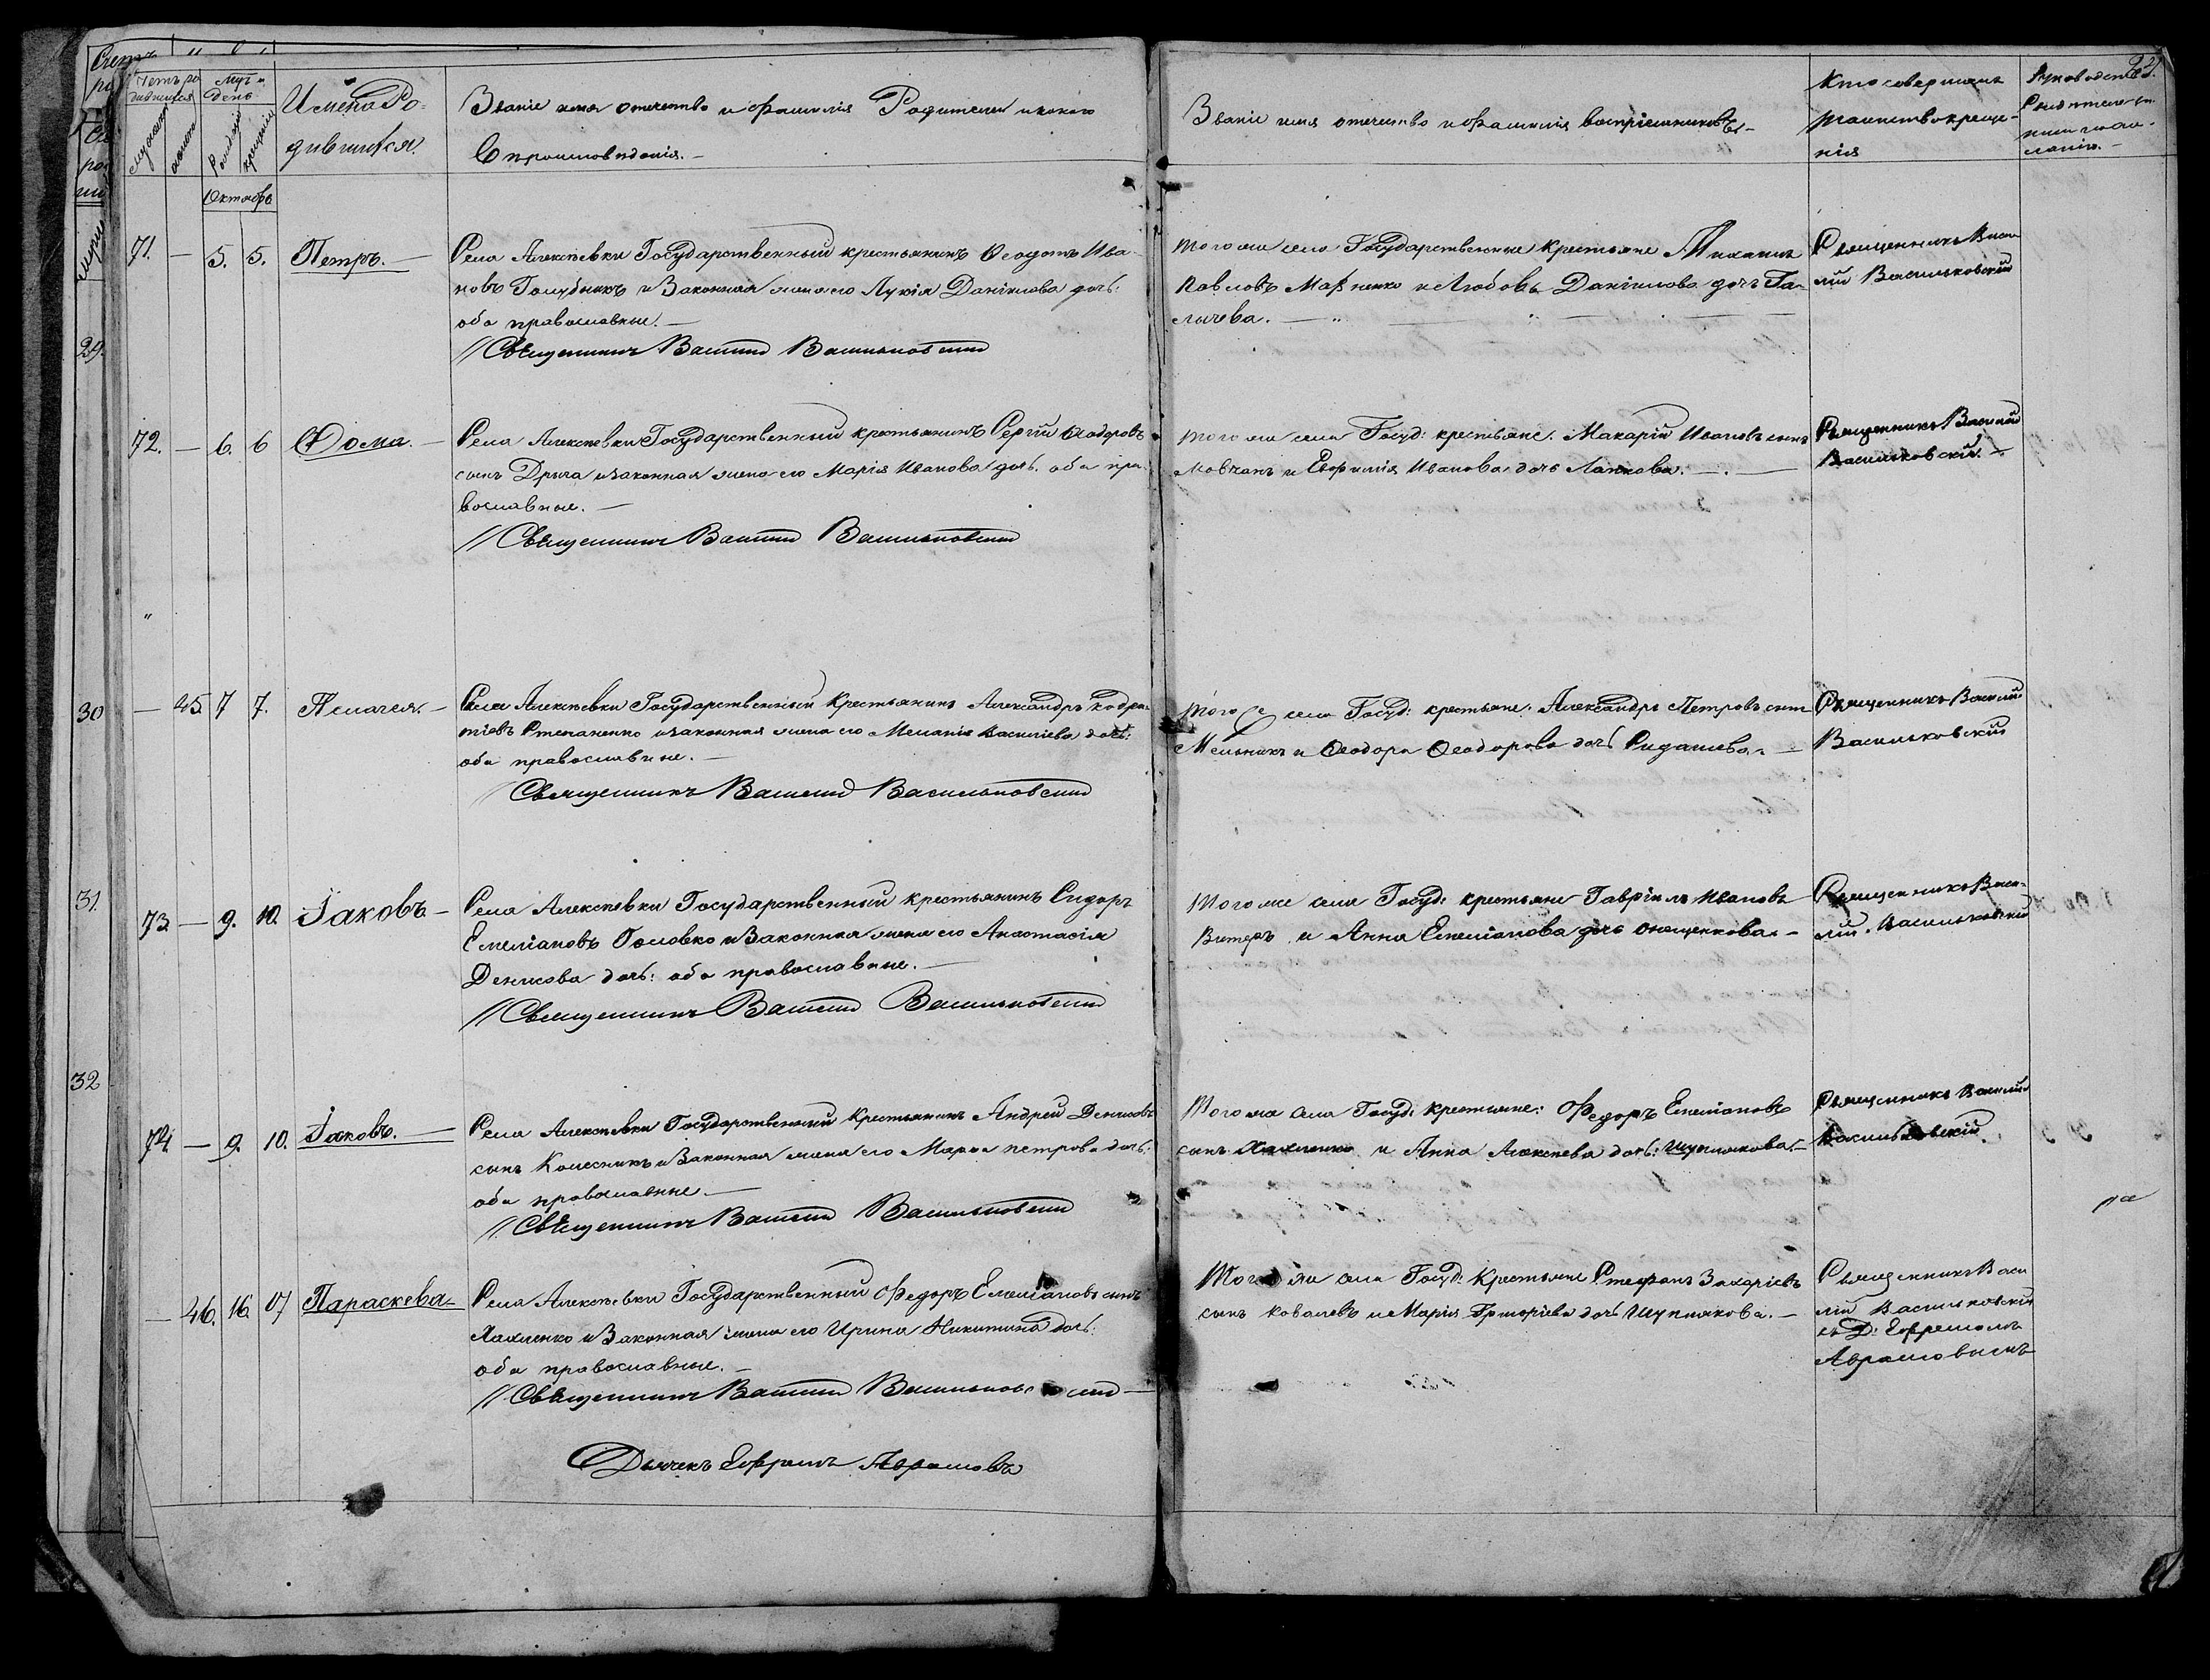 Счетъ ро
дившихся
Мѣс. и
день
Имена Ро-
дившихся.
Званіе имя отечество и фамилія Родителей и какого
вѣроисповѣданія.
Званіе имя отечество и фамилія воспріемниковъ
Кто совершалъ
таинство креще-
нія
рожденія
крещенія
Октябрь
71. — 5. 5. Петръ. —
Села Алексѣевки Государственный крестьянинъ Ѳеодотъ Ива-
новъ Голубникъ и Законная жена его Лукія Даніилова дочь:
оба православные. —
Священникъ Василій Васильковскій
Того же села Государственные Крестьяне Михаилъ
Павловъ и Любовь Даніилова дочь Га-
лычева. —
Священникъ Васи-
лій Васильковскій
29.
72. — 6. 6 Ѳома. —
Села Алексѣевки Государственный крестьянинъ Сергій Ѳеодоровъ
сынъ Дрыга и законная жена его Марія Иванова дочь. оба пра-
вославные. —
Священникъ Василій Васильковскій
Того же села Госуд: крестьяне: Макарій Ивановъ сынъ
Мовчанъ и Евфимія Иванова дочь
Священникъ Василій
Васильковскій. —
30
— 45 7 7. Пелагея. —
Села Алексѣевки Государственный Крестьянинъ Александръ Кодра-
тіевъ Степаненко и законная жена его Меланія Василіева дочь:
оба православные. —
Священникъ Василій Васильковскій
Того же села Госуд: крестьяне: Александръ Петровъ сынъ
Мельникъ и Ѳеодора Ѳеодорова дочь
Священникъ Василій
Васильковскій
31.
73 — 9. 10. Іаковъ —
Села Алексѣевки Государственный крестьянинъ Сидоръ
Емеліановъ Головко и Законная жена его Анастасія
Денисова дочь: оба православные. —
Священникъ Василій Васильковскій
Того же села Госуд: крестьяне Гавріилъ Ивановъ
и Анна Емеліанова дочь Онещенкова. —
Священникъ Васи-
лій Васильковскій
32
74. — 9. 10. Іаковъ. —
Села Алексѣевки Государственный Крестьянинъ Андрей Денисовъ
сынъ Колесникъ и Законная жена его Марѳа Петрова дочь:
оба православные —
Священникъ Василій Васильковскій
Того же села Госуд: Крестьяне: Федоръ Емеліановъ
сынъ Хахленко и Анна Алексѣева дочь: Шуплякова. —
Священникъ Василій
Васильковскій.
— 46. 16. 17 Параскева —
Села Алексѣевки Государственный Федоръ Емеліановъ сынъ
Хахленко и Законная жена его Ирина Никитина дочь:
оба православные. —
Священникъ Василій Васильковскій —
Дьячекъ Ефремъ Аврамовъ
Того же села Госуд: Крестьяне Стефанъ Захаріевъ
сынъ Ковалевъ и Марія Григоріева дочь Шуплякова. —
Священникъ Васи
лій Васильковскій
съ Д: Ефремомъ
Аврамовымъ